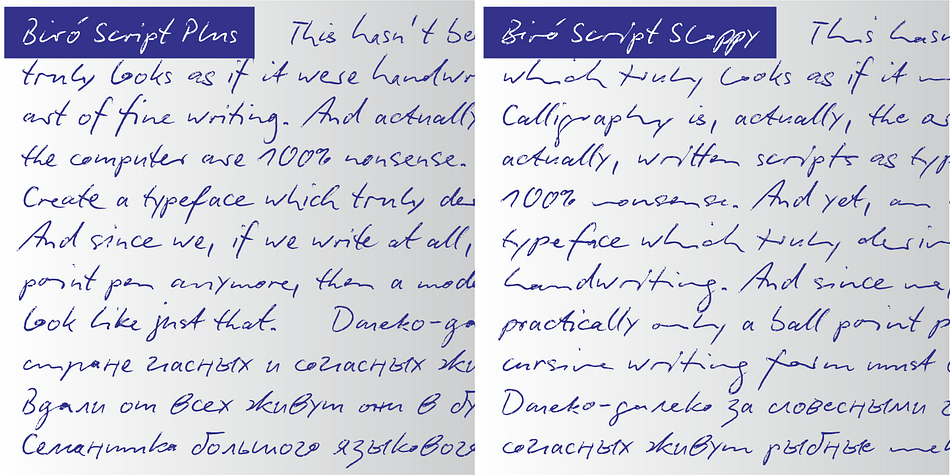 Biró Script Plus This hasn't be
truly looks as if it were handwr
art of fine writing. And actually
the computer are 100% nonsense.
Create a typeface which truly de
And since we, if we write at all,
point pen anymore, then a mode
look like just that. Далеко-да
стране гласных и согласных жи
Вдали от всех живут они в бу
Семантика большого языкового
Biró Script Sloppy This hasn
which truly looks as if it
Calligraphy is, actually, the ar
actually, written scripts as typ
100% nonsense. And yet, an
typeface which truly deserv
handwriting. And since we,
practically only a ball point p
cursive writing form must
Далеко-далеко за словесными
согласных живут рыбные